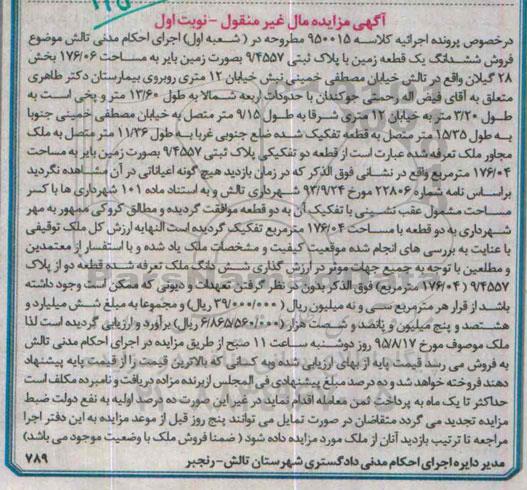 آگهی مزایده مال غیر منقول - نوبت اول
درخصوص پرونده اجرائیه کلاسه ۹۵۰۰۱۵ مطروحه در ( شعبه اول) اجرای احکام مدنی تالش موضوع
فروش ششدانگ یک قطعه زمین با پلاک ثبتی ۹/۴۵۵۷ بصورت زمین بایر به مساحت ۱۷۶/۰۶ بخش
۲۸ گیلان واقع در تالش خیابان مصطفی خمینی نبش خیابان ۱۲ متری روبروی بیمارستان دکتر طاهری
متعلق به آقای فیض اله رحمتی جوکندان با حدودات ربعه شمالا به طول ۱۳/۶۰ متر و پخی است به
طول ۳/۲۰ متر به خیابان ۱۲ متری شرقا به طول ۹/۱۵ متر متصل به خیابان مصطفی خمینی جنوبا
به طول ۱۵/۳۵ متر متصل به قطعه تفکیک شده ضلع جنوبی غربا به طول ۱۱/۳۶ متر متصل به ملک
مجاور ملک تعرفه شده عبارت است از قطعه دو تفکیکی پلاک ثبتی ۹/۴۵۵۷ بصورت زمین بایر به مساحت
۱۷۶/۰۴ مترمربع واقع در نشانی فوق الذکر که در زمان بازدید هیچ گونه اعیاناتی در آن مشاهده نگردید
براساس نامه شماره ۲۲۸۰۶ مورخ ۹۳/۹/۲۴ شهرداری تالش و به استناد ماده ۱۰۱ شهرداری ها با کسر
مساحت مشمول عقب نشینی با تفکیک آن به دو قطعه موافقت گردیده و مطالق کروکی ممهور به مهر
شهرداری به دو قطعه با مساحت ۱۷۶/۰۴ مترمربع تفکیک گردیده است النهایه ارزش کل ملک توقیفی
با عنایت به بررسی های انجام شده موقعیت کیفیت و مشخصات ملک یاد شده و با استفسار از معتمدین
و مطلعین با توجه به جمیع جهات موثر در ارزش گذاری شش دانگ ملک تعرفه شده قطعه دو از پلاک
۹/۴۵۵۷ (۱۷۶/۰۴ مترمربع) فوق الذکر بدون در نظر گرفتن تعهدات و دیونی که ممکن است وجود داشته
باشد از قرار هر مترمربع سی و نه میلیون ریال (۳۹/۰۰۰/۰۰۰ ریال) و مجموعا به مبلغ شش میلیارد و
هشتصد و پنج میلیون و پانصد و شصت هزار (۶/۸۶۵/۵۶۰/۰۰۰ ریال) برآورد و ارزیابی گردیده است لذا
ملک موصوف مورخ ۹۵/۸/۱۷ روز دوشنبه ساعت ۱۱ صبح از طریق مزایده در اجرای احکام مدنی تالش
به فروش می رسد قیمت پایه از بهای ارزیابی شده وبه کسانی که بالاترین قیمت را از قیمت پایه پیشنهاد
دهند فروخته خواهد شد و ده درصد مبلغ پیشنهادی فی المجلس ازبرنده مزاده دریافت و نامبرده مکلف است
حداکثر تا یک ماه به پرداخت ثمن معامله اقدام نماید در غیر این صورت ده درصد اولیه به نفع دولت ضبط
مزایده تجدید می گردد متقاضان در صورت تمایل می توانند پنج روز قبل از موعد مزایده به این دفتر اجرا
مراجعه تا ترتیب بازدید آنان از ملک مورد مزایده داده شود ( ضمنا فروش ملک با وضعیت موجود می باشد)
مدیر دایره اجرای احکام مدنی دادگستری شهرستان تالش - رنجبر ۷۸۹